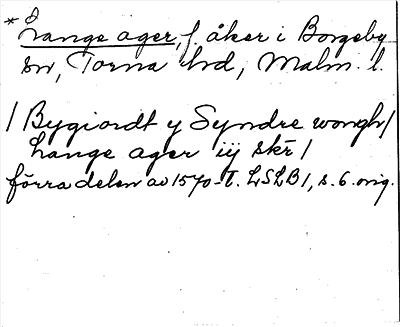 * Lange ager, f. åker i Borgeby
sn, Torna hd, Malm. l.
/ Bygiordt y Syndre wongh /
Lange ager iij skr /
förra delen av 1570-t. LSLB 1, s. 6. orig.